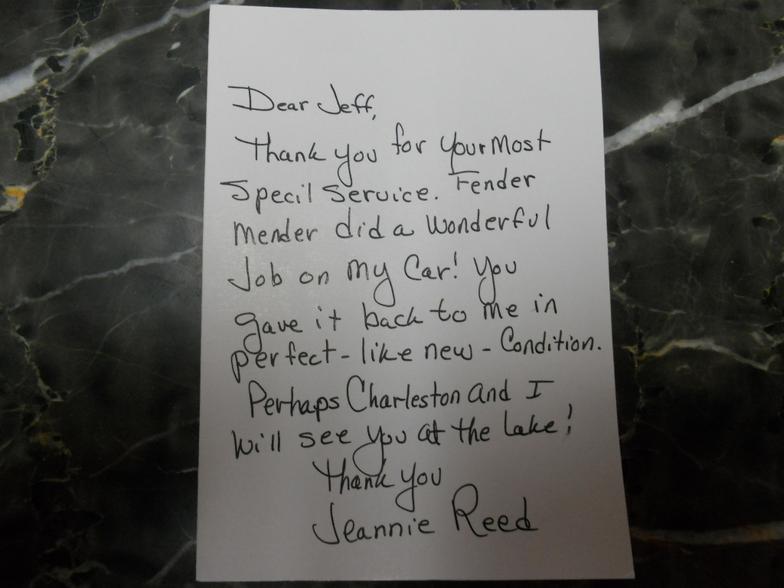 Dear Jeff,
Thank you for your most
Specil service. Fender
Mender did a wonderful
Job on my Car! You
gave it back to me in
perfect - like new - Condition.
Perhaps Charleston and I
will see you at the lake!
Thank you
Jeannie Reed